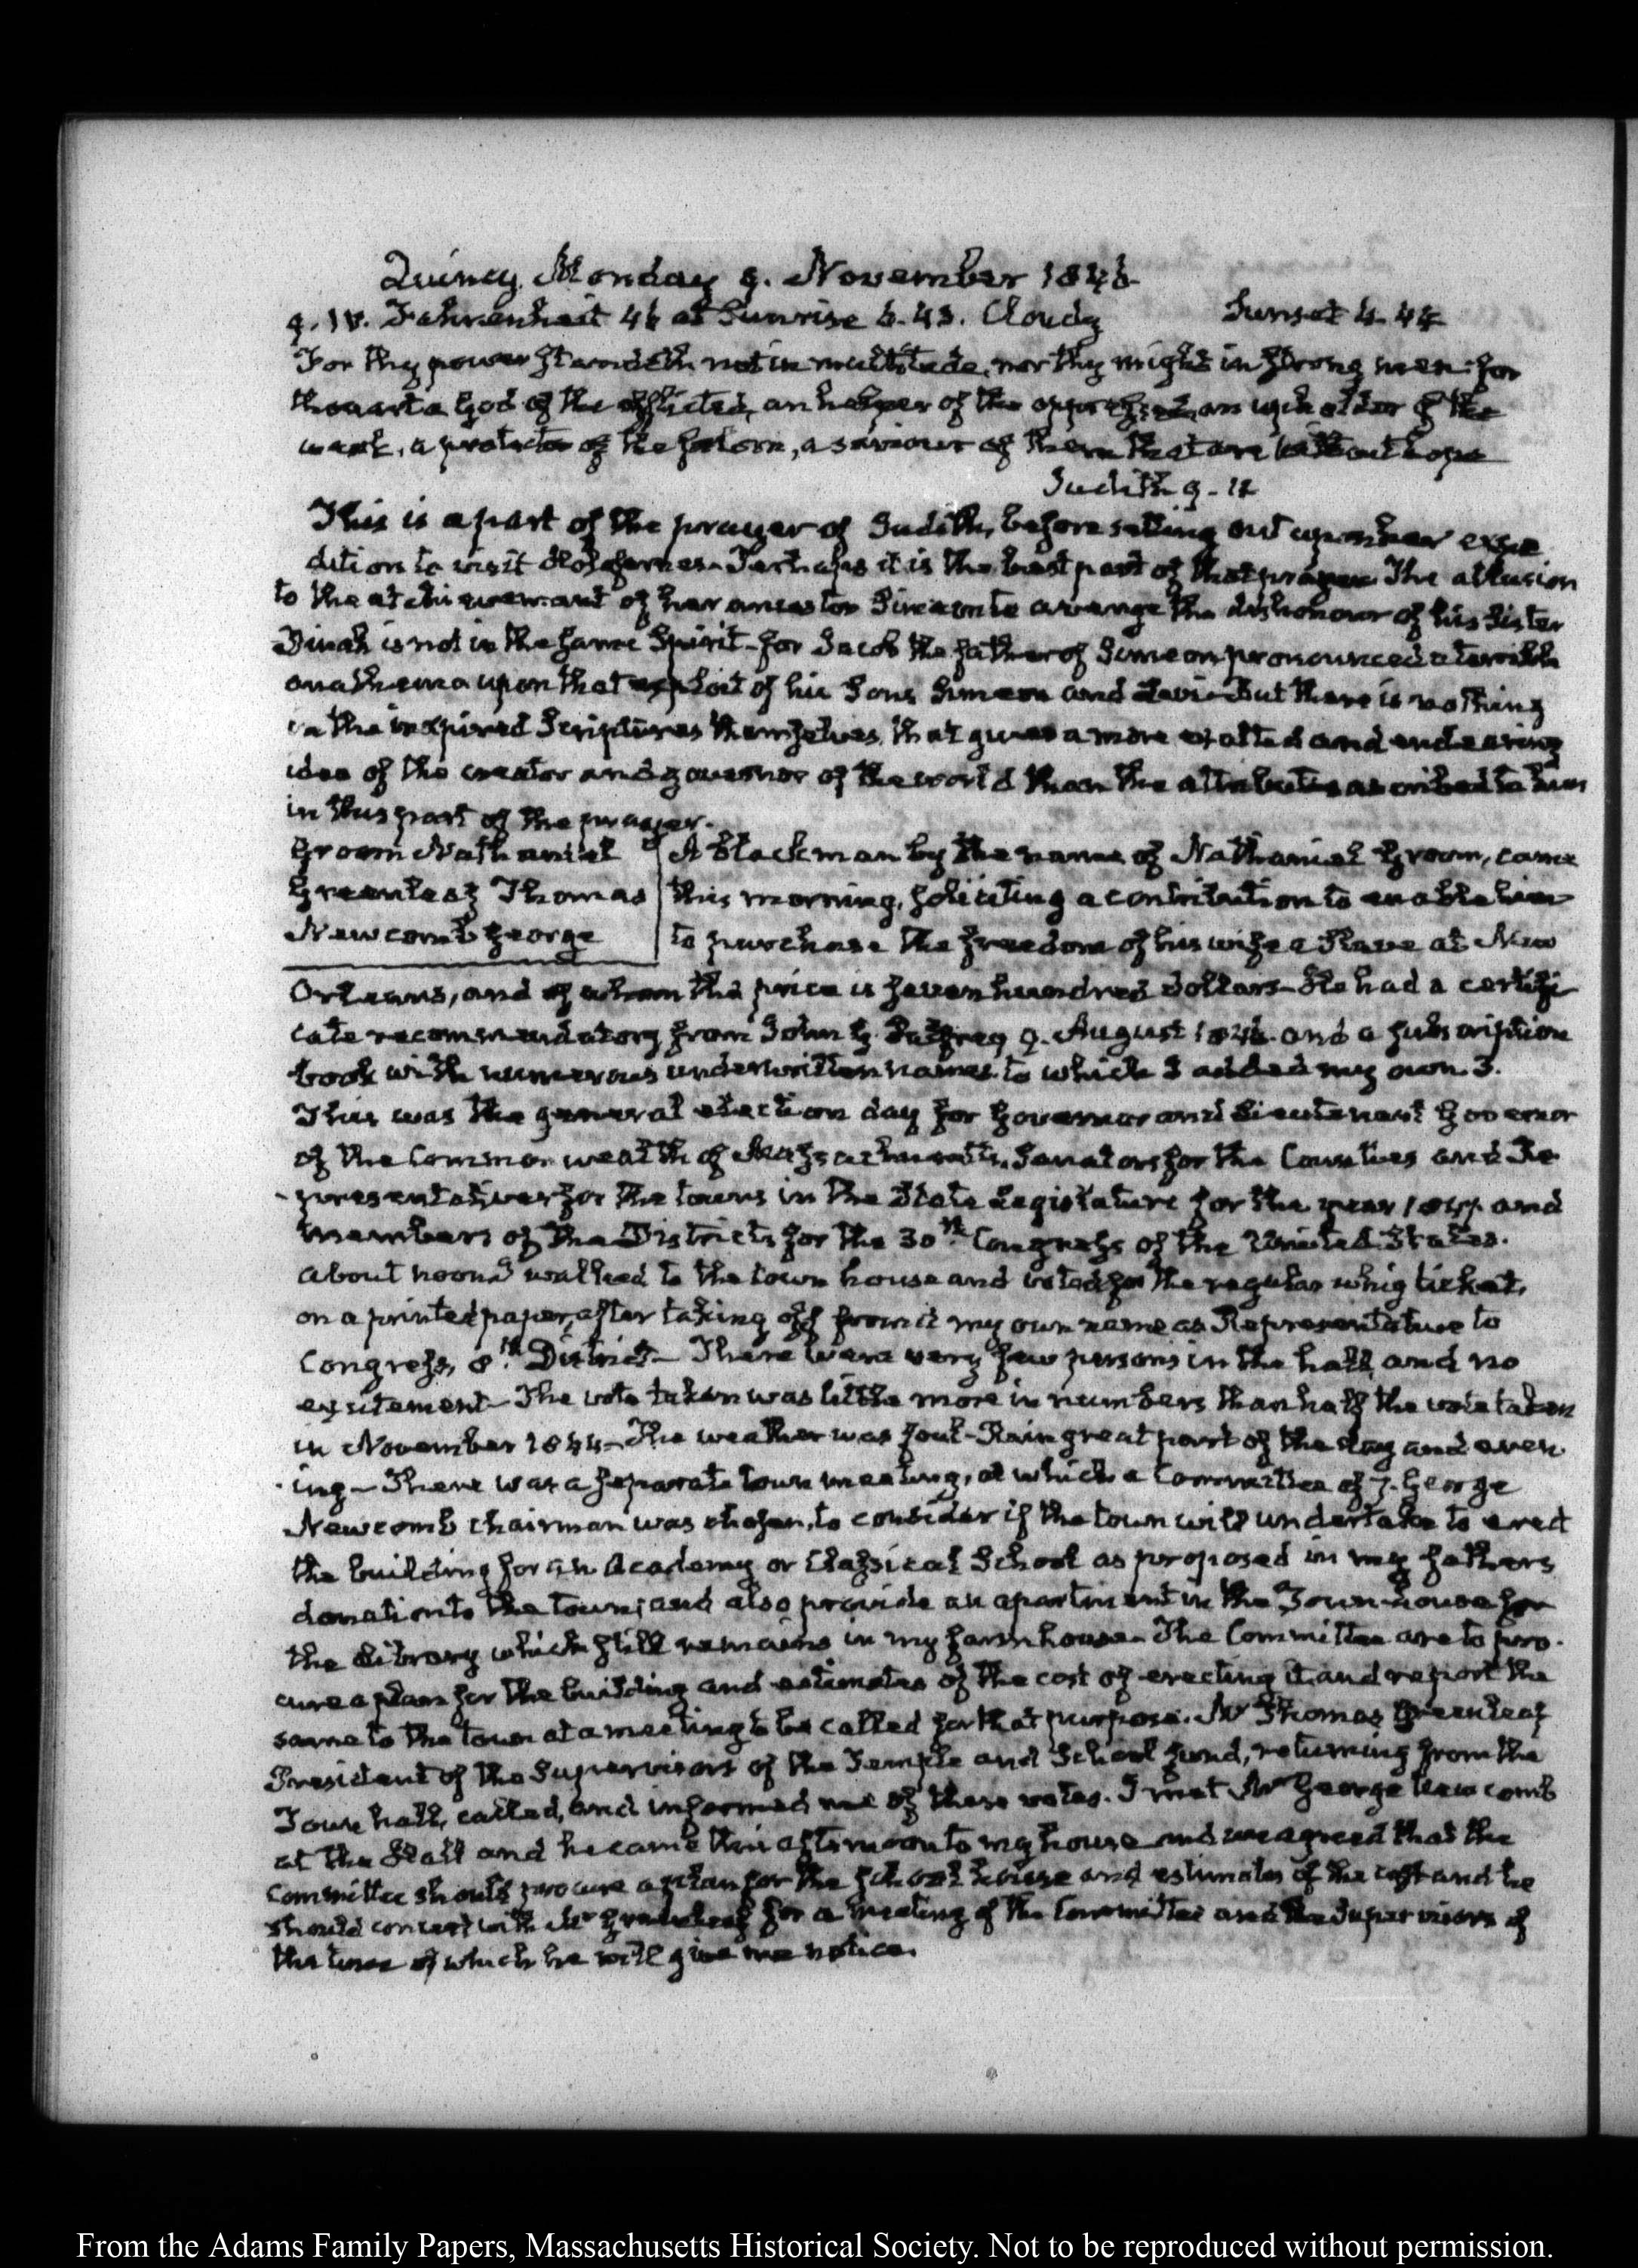 Quincy Monday 9. November 1846
9. IV. Fahrenheit 46 at Sunrise 6.43. Cloudy Sunset 4.44
For thy power standeth not in multitude, nor thy might in strong men: for
thou art a God of the afflicted, an helper of the oppressed, an upholder of the
weak, a protector of the forlorn, a saviour of them that are without hope
Judith 9-11
This is a part of the prayer of Judith, before setting out upon her expe
dition to visit Holofernes. Perhaps it is the best part of that prayer. The allusion
to the atchievement of her ancestor Simeon to avenge the dishonour of his Sister
Dinah is not in the same Spirit - for Jacob the father of Simeon pronounced a terrible
anathema upon that exploit of his Sons Simeon and Levi - But there is nothing
in the inspired Scriptures themselves, that gives a more exalted and endearing
idea of the creator and governor of the world than the attributes ascribed to him
in this part of the prayer.
Groom Nathaniel
Greenleaf Thomas
Newcomb George
A black man by the name of Nathaniel Groom, came
this morning, soliciting a contribution to enable him
to purchase the freedom of his wife a Slave at New
Orleans, and of whom the price is seven hundred dollars - He had a certifi
cate recommendatory from John G. Palfrey 9. August 1846. and a subscription
book with numerous underwritten names. to which I added my own. 3.
This was the general election day for Governor and Lieutenant Governor
of the Commonwealth of Massachusetts, Senators for the Counties and Re
-presentatives for the towns in the State Legislature for the year 1847. and
members of the Districts for the 30th. Congress of the United States.
About noon I walked to the town house and voted for the regular whig ticket,
on a printed paper, after taking off from it my own name as Representative to
Congress, 8th. District - There were very few persons in the hall, and no
excitement - The vote taken was little more in numbers than half the vote taken
in November 1844 - The weather was foul - Rain great part of the day and even
-ing - There was a separate town meeting, at which a Committee of 7. George
Newcomb chairman was chosen, to consider if the town will undertake to erect
the building for an Academy or Classical School as proposed in my fathers
donation to the town; and also provide an apartment in the Town-house for
the Library which still remains in my farm house - The Committee are to pro-
cure a plan for the building and estimates of the cost of erecting it and report the
same to the town at a meeting to be called for that purpose. Mr Thomas Greenleaf
President of the Supervisors of the Temple and School fund, returning from the
Town hall, called, and informed me of these votes. I met Mr George Newcomb
at the Hall and he came this afternoon to my house and we agreed that the
Committee should procure a plan for the school house and estimates of the cost and he
should concert with Mr Greenleaf for a meeting of the Committee and the Supervisors of
the time of which he will give me notice.
From the Adams Family Papers, Massachusetts Historical Society. Not to be reproduced without permission.